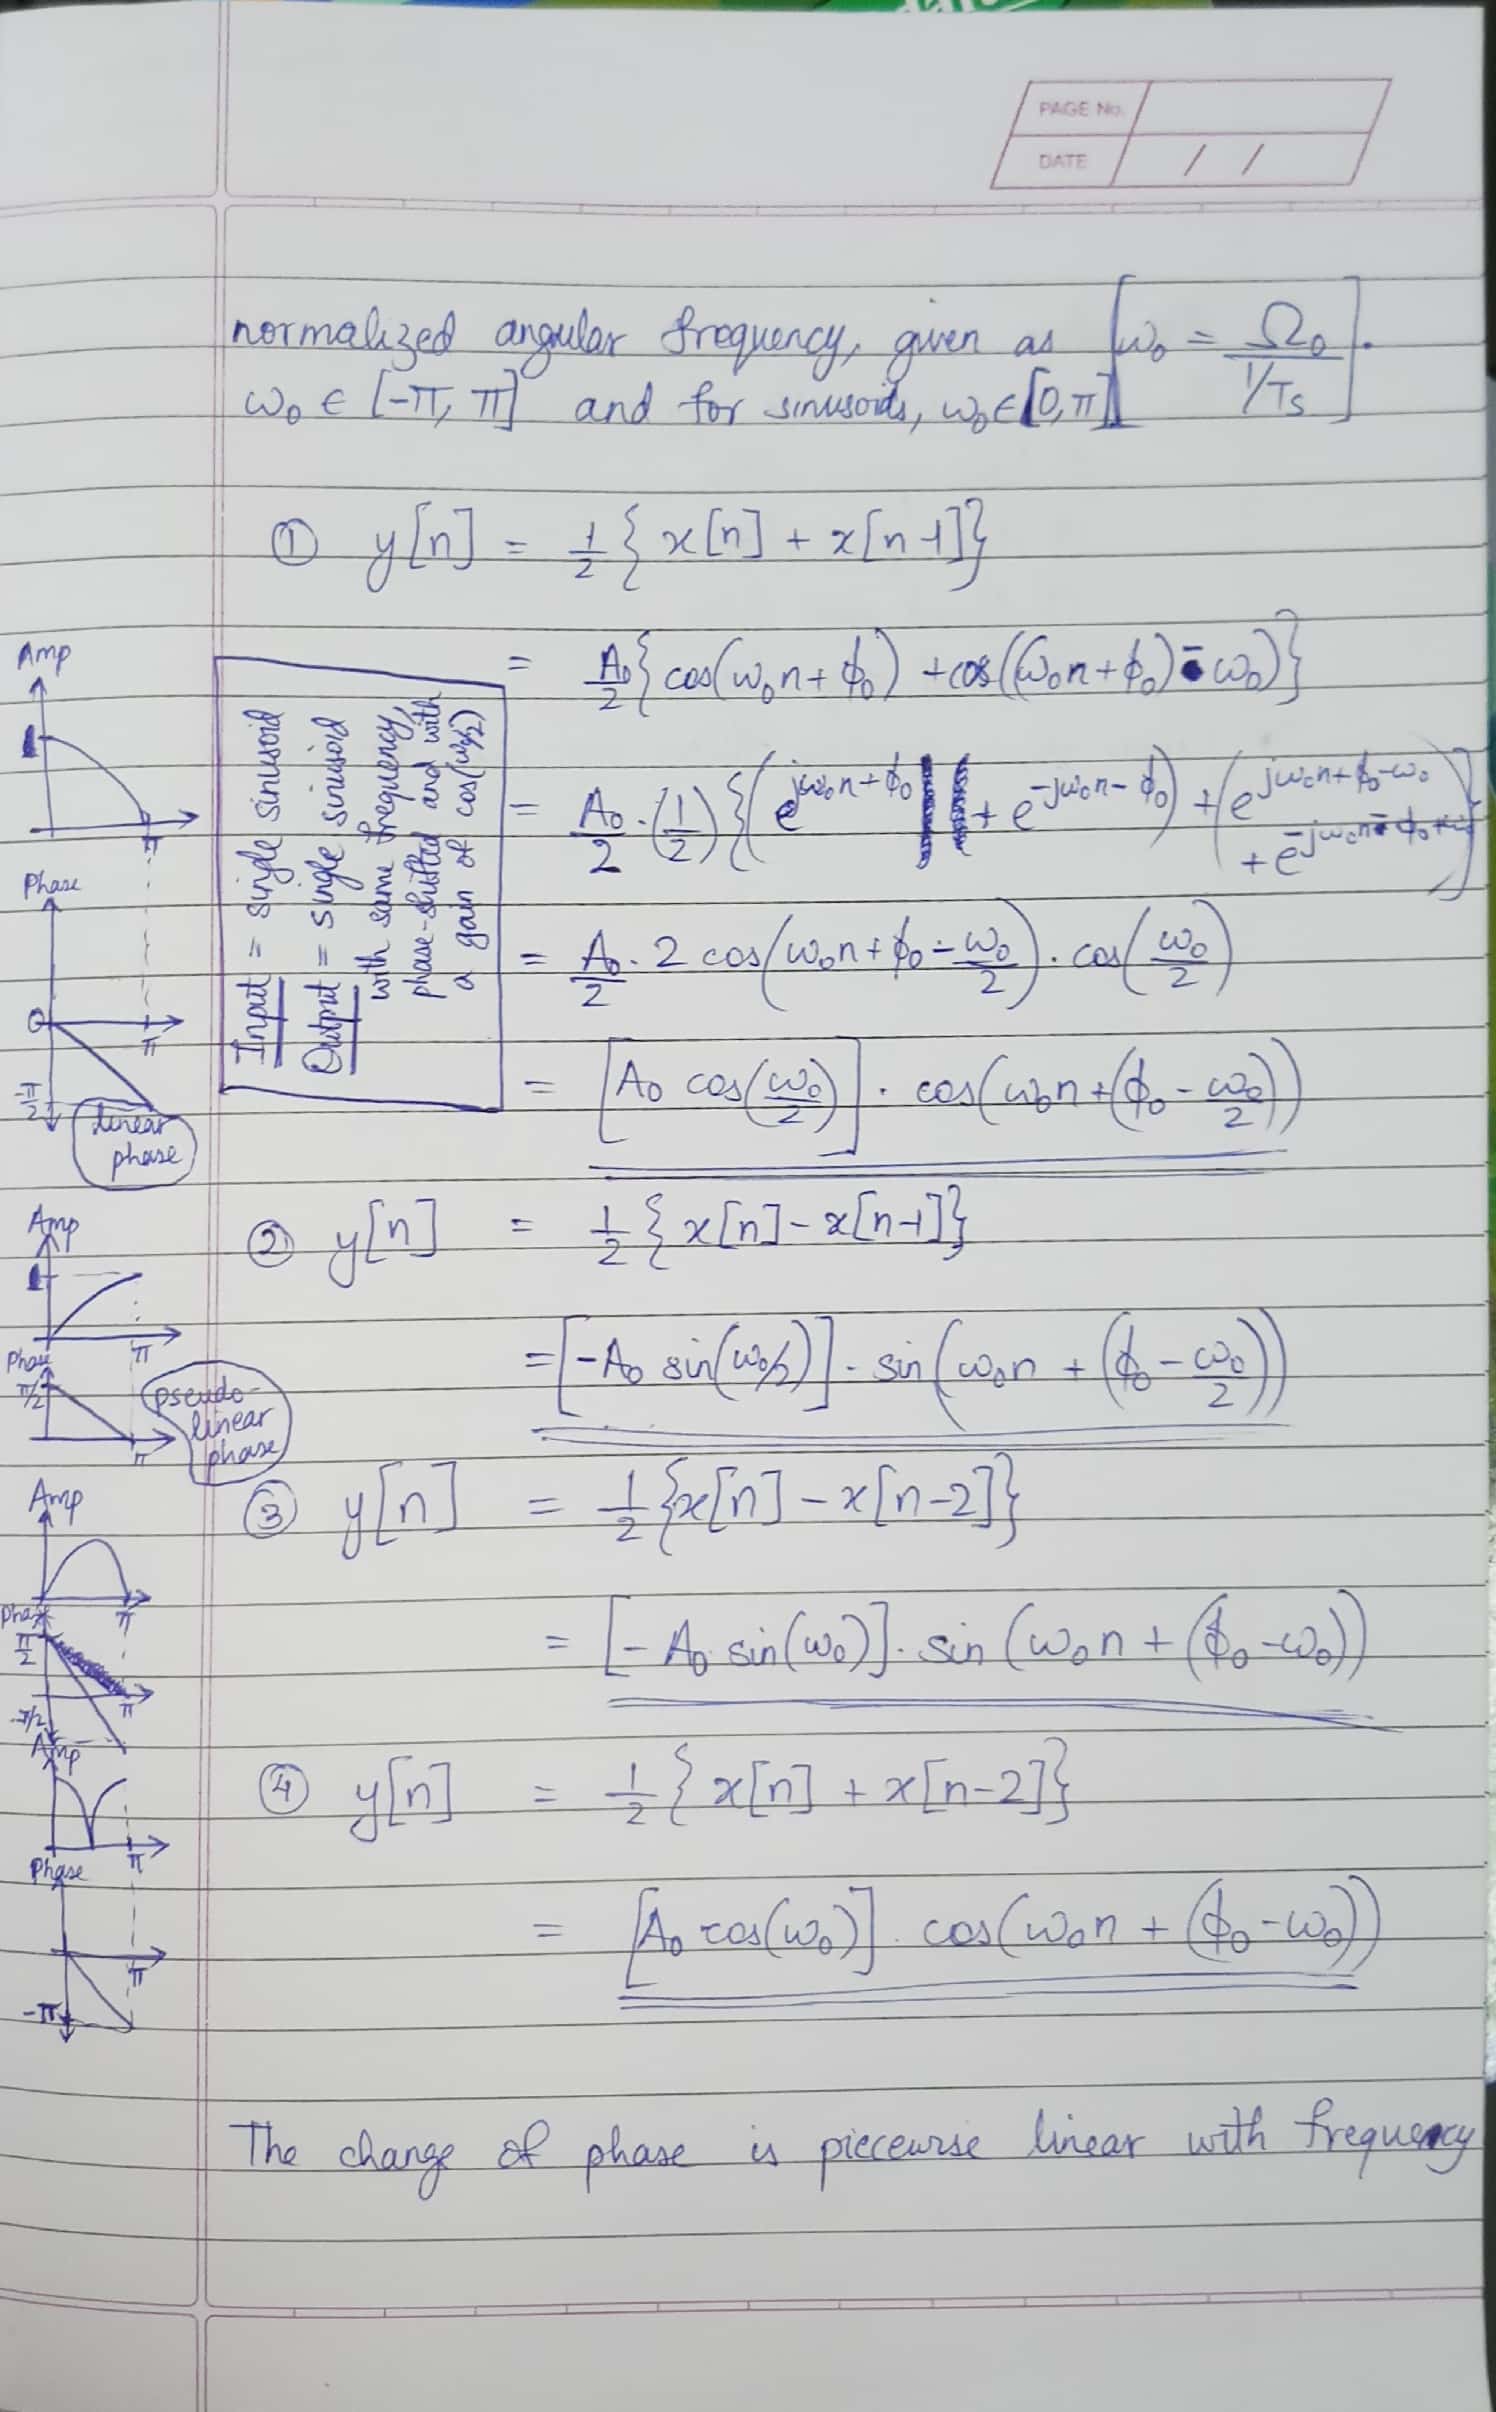 PAGE No.
DATE / /
normalized angular frequency, given as [ω₀ = Ω₀ / 1/Ts].
ω₀ ∈ [-π, π] and for sinusoids, ω₀ ∈ [0, π]
① y[n] = 1/2 { x[n] + x[n-1]}
= A₀/2 { cos(ω₀n + ϕ₀) + cos((ω₀n + ϕ₀) - ω₀)}
= A₀/2 · (1/2) {(e^{jω₀n + ϕ₀} + e^{-jω₀n - ϕ₀}) + (e^{jω₀n + ϕ₀ - ω₀}
+ e^{-jω₀n - ϕ₀ + ω₀})}
= A₀/2 · 2 cos(ω₀n + ϕ₀ - ω₀/2) · cos(ω₀/2)
= [A₀ cos(ω₀/2)] · cos(ω₀n + (ϕ₀ - ω₀/2))
Input = single sinusoid
Output = single sinusoid
with same frequency,
phase-shifted and with
a gain of cos(ω₀/2)
Amp
1
π
Phase
0
π
-π/2
linear
phase
② y[n] = 1/2 { x[n] - x[n-1]}
= [-A₀ sin(ω₀/2)] · sin(ω₀n + (ϕ₀ - ω₀/2))
Amp
1
π
Phase
π/2
π
pseudo-
linear
phase
③ y[n] = 1/2 {x[n] - x[n-2]}
= [-A₀ sin(ω₀)] · sin(ω₀n + (ϕ₀ - ω₀))
Amp
π
Phase
π/2
π
-π/2
④ y[n] = 1/2 { x[n] + x[n-2]}
= [A₀ cos(ω₀)] · cos(ω₀n + (ϕ₀ - ω₀))
Amp
π
Phase
π
-π
The change of phase is piecewise linear with frequency